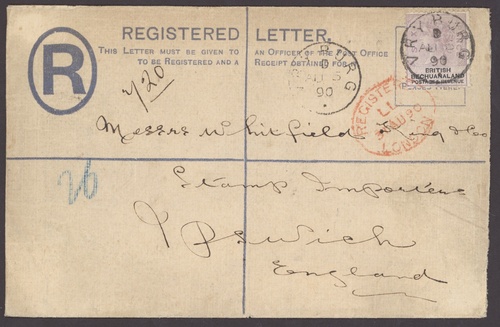 REGISTERED LETTER.
THIS LETTER MUST BE GIVEN TO AN OFFICER OF THE POST OFFICE
TO BE REGISTERED AND A RECEIPT OBTAINED FOR
R
420
VRYBURG
90
BRITISH
BECHUANALAND
POSTAGE & REVENUE
VRYBURG
AU
90
REGISTERED
AU 90
LONDON
Messrs Whitfield King & Co
26
Stamp Importers
Ipswich
England